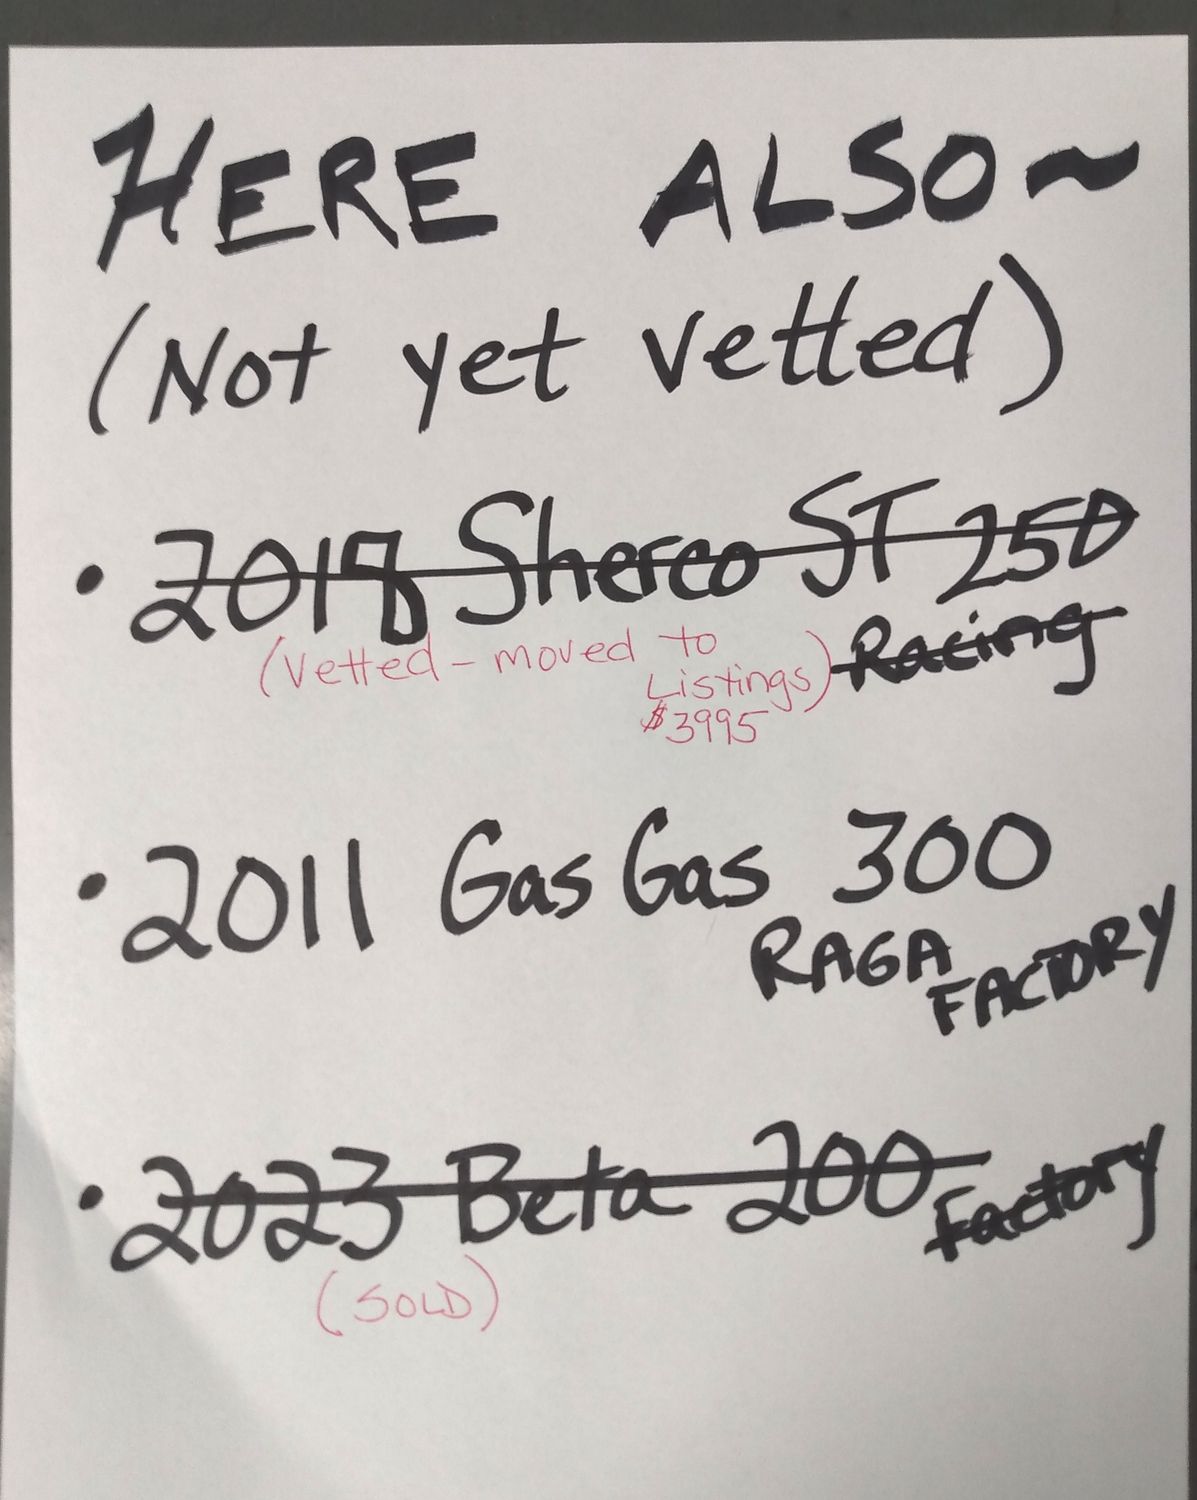 HERE ALSO~
(Not yet vetted)
• 2018 Sherco ST 250
Racing
(Vetted - moved to
Listings)
$3995
• 2011 Gas Gas 300
RAGA
FACTORY
• 2023 Beta 200
Factory
(SOLD)